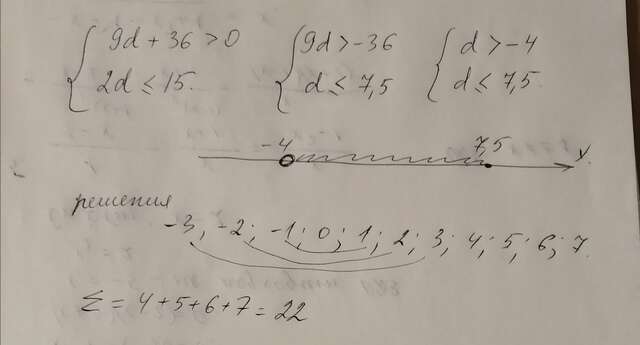 { 9d + 36 > 0 { 9d > -36 { d > -4
{ 2d ≤ 15. { d ≤ 7,5 { d ≤ 7,5.
-4 7,5 X.
решения
-3, -2; -1; 0; 1; 2; 3; 4; 5; 6; 7.
Σ = 4+5+6+7 = 22